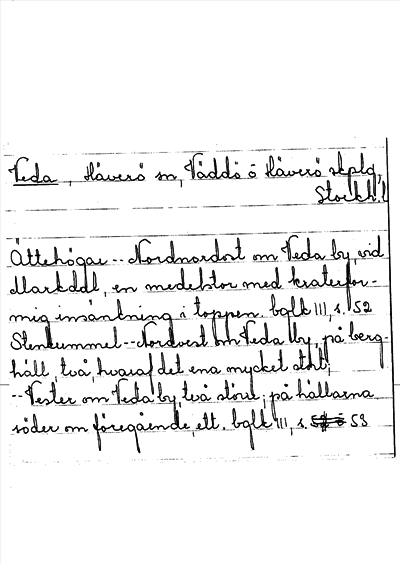 Veda, Häverö sn, Väddö o Häverö skplg,
Stockh. l
Ättehögar -- Nordnordost om Veda by, vid
Markddl, en medelstor med kraterfor-
mig insänkning i toppen. bglk III, s. 52
Stenkummel -- Nordvest om Veda by, på berg-
häll, två, hvaraf det ena mycket stort;
-- Vester om Veda by, två större; på hällarna
söder om föregående, ett. bglk III, s. 53